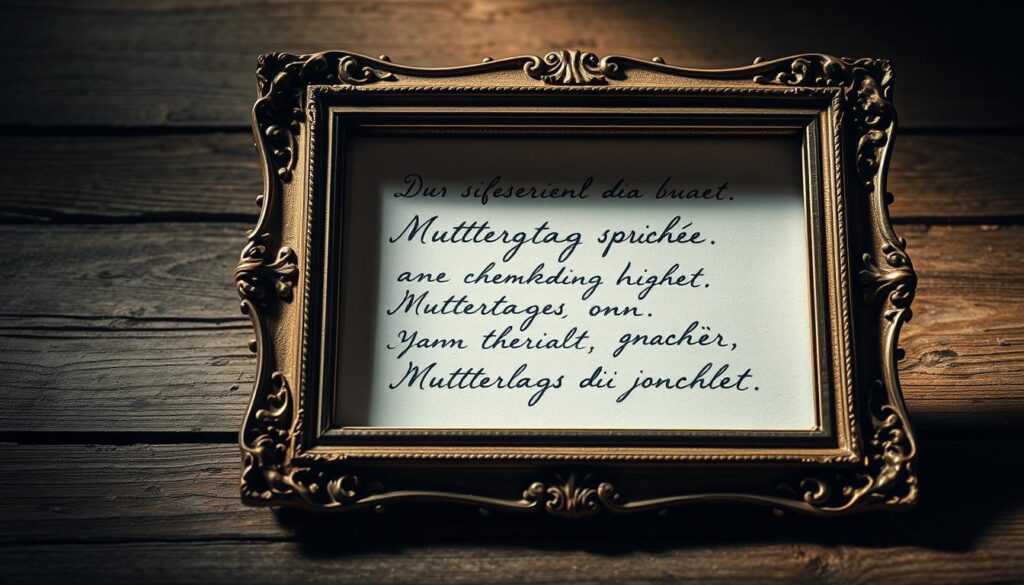 Dur sifeserienl dia buaet.
Mutttergtag sprichée.
ane chemkding highet.
Muttertages, onn.
Yann therialt, gnachër,
Muttterlags dii jonchlet.